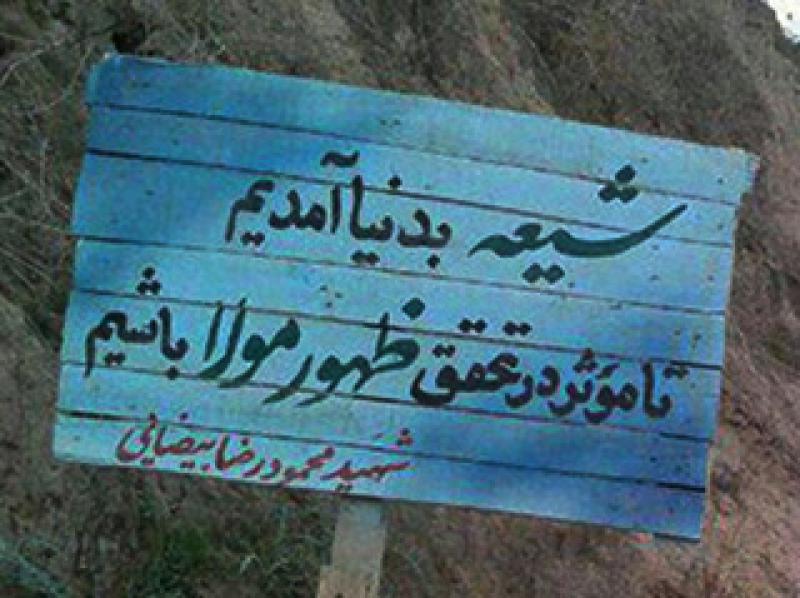 شیعه بدنیا آمدیم
تا مؤثر در تحقق ظهور مولا باشیم
شهید محمودرضا بیضائی